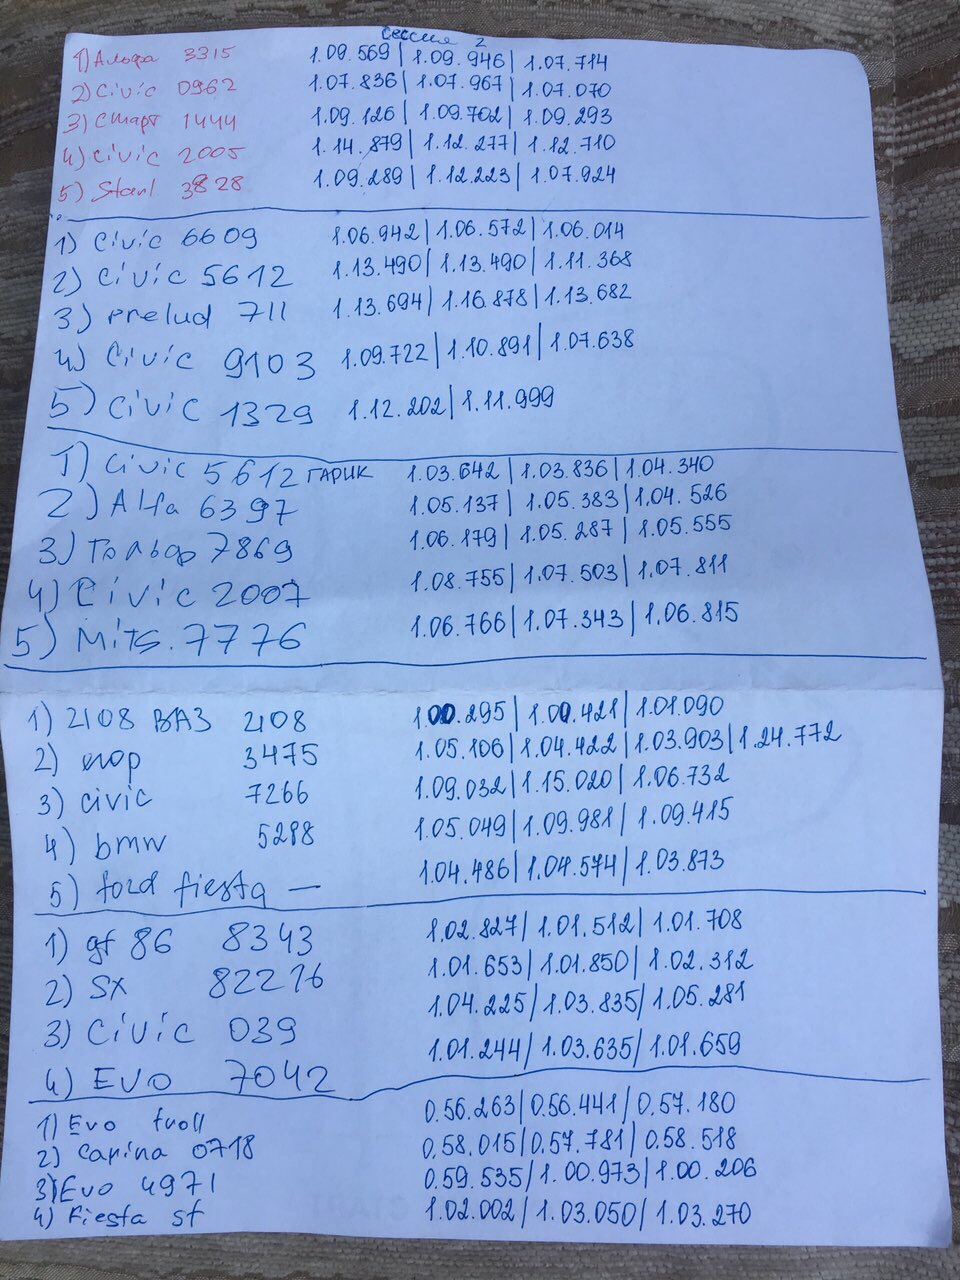 Сессия 2
1) Альфа 3315 1.09.569 | 1.09.946 | 1.07.714
2) Civic 0962 1.07.836 | 1.07.967 | 1.07.070
3) Старт 1444 1.09.126 | 1.09.702 | 1.09.293
4) Civic 2005 1.14.879 | 1.12.277 | 1.12.710
5) Starl 3828 1.09.289 | 1.12.223 | 1.07.924
1) Civic 6609 1.06.942 | 1.06.572 | 1.06.014
2) Civic 5612 1.13.490 | 1.13.490 | 1.11.368
3) prelud 711 1.13.694 | 1.16.878 | 1.13.682
4) Civic 9103 1.09.722 | 1.10.891 | 1.07.638
5) Civic 1329 1.12.202 | 1.11.999
1) Civic 5612 ГАРИК 1.03.642 | 1.03.836 | 1.04.340
2) Alfa 6397 1.05.137 | 1.05.383 | 1.04.526
3) Гольф 7869 1.06.179 | 1.05.287 | 1.05.555
4) Civic 2007 1.08.755 | 1.07.503 | 1.07.811
5) Mits. 7776 1.06.766 | 1.07.343 | 1.06.815
1) 2108 ВАЗ 2108 1.00.295 | 1.00.421 | 1.01.090
2) 3475 1.05.106 | 1.04.422 | 1.03.903 | 1.24.772
3) civic 7266 1.09.032 | 1.15.020 | 1.06.732
4) bmw 5298 1.05.049 | 1.09.981 | 1.09.415
5) ford fiesta — 1.04.486 | 1.04.574 | 1.03.873
1) gt 86 8343 1.02.827 | 1.01.512 | 1.01.708
2) SX 82276 1.01.653 | 1.01.850 | 1.02.312
3) Civic 039 1.04.225 | 1.03.835 | 1.05.281
4) EVO 7042 1.01.244 | 1.03.635 | 1.01.659
1) Evo tvoll 0.56.263 | 0.56.441 | 0.57.180
2) Carina 0718 0.58.015 | 0.57.781 | 0.58.518
3) Evo 4971 0.59.535 | 1.00.973 | 1.00.206
4) Fiesta st 1.02.002 | 1.03.050 | 1.03.270